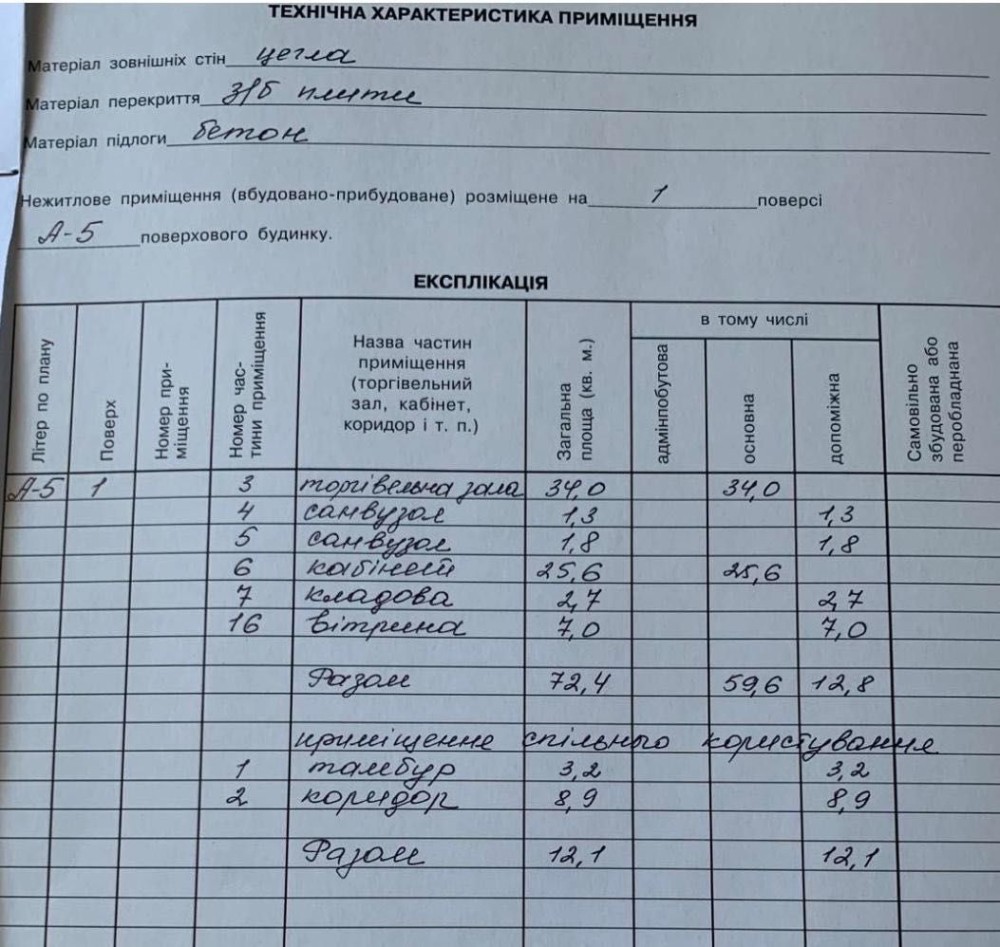 ТЕХНІЧНА ХАРАКТЕРИСТИКА ПРИМІЩЕННЯ
Матеріал зовнішніх стін цегла
Матеріал перекриття з/б плити
Матеріал підлоги бетон
Нежитлове приміщення (вбудовано-прибудоване) розміщене на 1 поверсі
А-5 поверхового будинку.
ЕКСПЛІКАЦІЯ
Літер по плану
Поверх
Номер при-
міщення
Номер час-
тини приміщення
Назва частин
приміщення
(торгівельний
зал, кабінет,
коридор і т. п.)
Загальна
площа (кв. м.)
в тому числі
адмінпобутова
основна
допоміжна
Самовільно
збудована або
переобладнана
А-5 1 3 торгівельна зала 34,0 34,0
4 санвузол 1,3 1,3
5 санвузол 1,8 1,8
6 кабінет 25,6 25,6
7 кладова 2,7 2,7
16 вітрина 7,0 7,0
Разом 72,4 59,6 12,8
приміщення спільного користування
1 тамбур 3,2 3,2
2 коридор 8,9 8,9
Разом 12,1 12,1